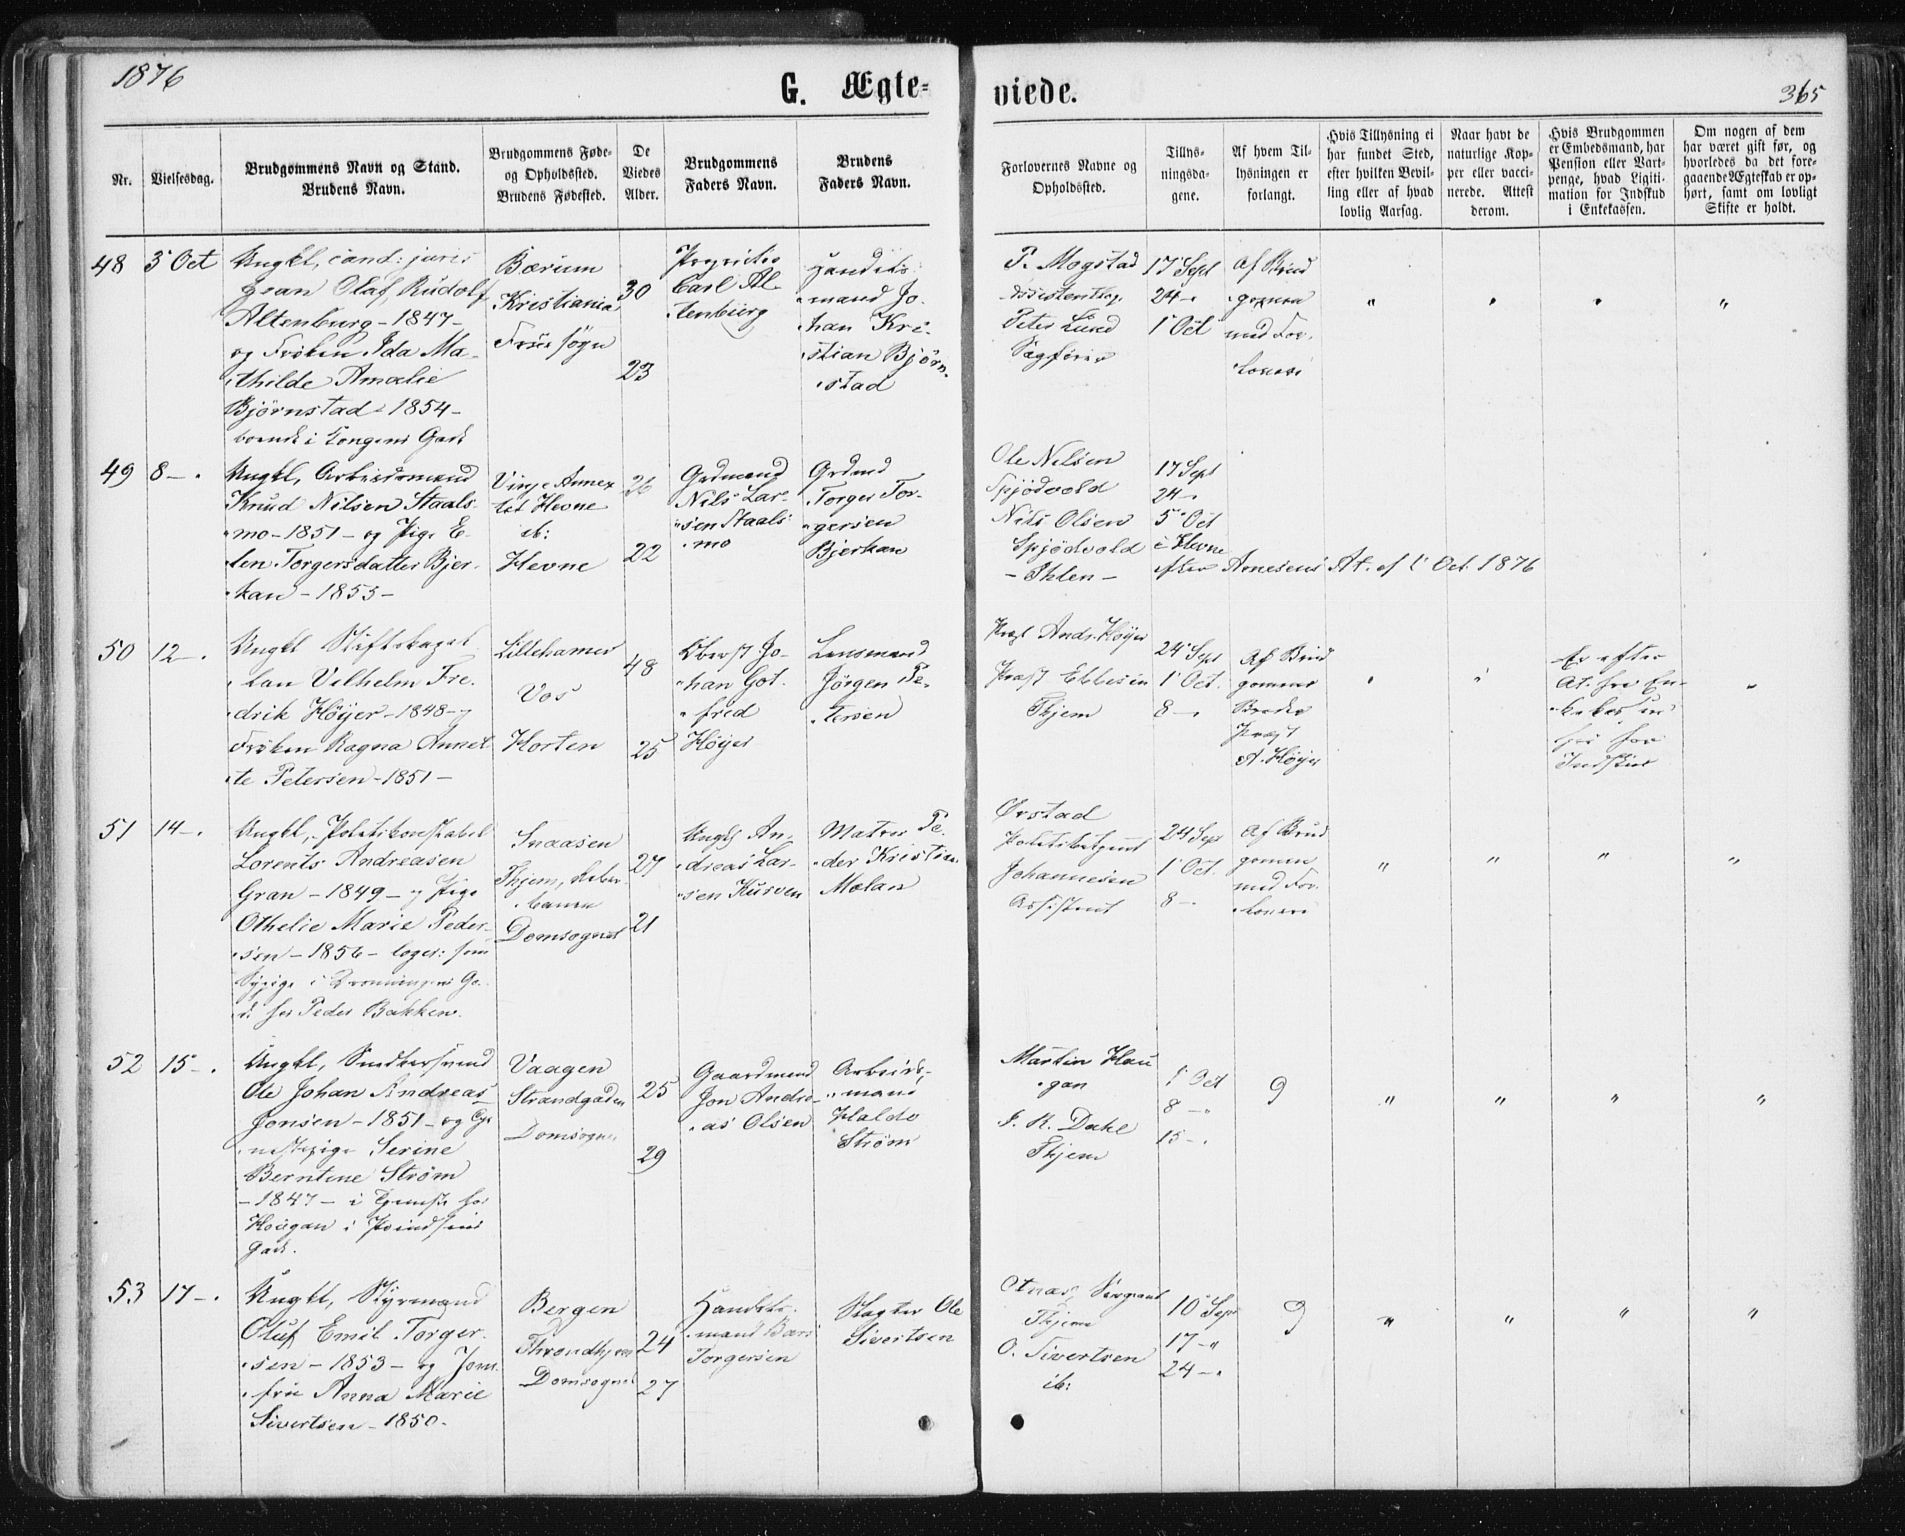 1876
G. Ægte-
viede.
365
Nr.
Vielsesdag.
Brudgommens Navn og Stand.
Brudens Navn.
Brudgommens Føde-
og Opholdssted.
Brudens Fødested.
De
Viedes
Alder.
Brudgommens
Faders Navn.
Brudens
Faders Navn.
Forlovernes Navne og
Opholdssted.
Tillys-
ningsda-
gene.
Af hvem Til-
lysningen er
forlangt.
Hvis Tillysning ei
har fundet Sted,
efter hvilken Bevil-
ling eller af hvad
lovlig Aarsag.
Naar havt de
naturlige Kop-
per eller vacci-
nerede. Attest
derom.
Hvis Brudgommen
er Embedsmand, har
Pension eller Vart-
penge, hvad Ligiti-
mation for Indskud
i Enkekassen.
Om nogen af dem
har været gift før, og
hvorledes da det fore-
gaaende Ægteskab er op-
hørt, samt om lovligt
Skifte er holdt.
48
5 Oct
Ungkl, cand: juris
Olaf Rudolf
Altenburg - 1847 -
og Frøken Ida Ma-
thilde Amalie
Bjørnstad - 1854 -
boende i Kongens Gade
Bærum
Kristiania
Frue sogn
30
23
Proprietær
Carl Al-
tenburg
Handels-
mand Jo-
han Kri-
stian Bjørn-
stad
P. Mogstad
Peter Lund
Sagfører
17 Sept
24 -
1 Oct
Af Brud
gommen
med For-
loverne
" " " "
49
8 -
Ungkl, Arbeidsmand
Knud Nilsen Staals-
mo - 1851 - og Pige E-
len Torgersdatter Bjer-
kan - 1855 -
Vinje Annex
til Hevne
ib:
Hevne
26
22
Grdmand
Nils Lar-
sen Staals
mo
Grdmd
Torger Tor-
gersen
Bjerkan
Ole Nilsen
Spjødvold
Nils Olsen
Spjødvold
- Ihlen -
17 Sept
24 -
5 Oct
i Hevne
efter Arnesens At. af 1 Oct 1876
50
12 -
Ungkl Stiftskapel
lan Vilhelm Fre-
drik Høyer - 1848 - og
Frøken Ragna Annet
te Petersen - 1851 -
Lillehamer
Vos
Horten
48
25
Oberst Jo-
han Got-
fred
Høyer
Lensmand
Jørgen Pe-
tersen
Præst Andr. Høyer
Præst Ebbesen
Thjem
24 Sept
1 Oct.
8 -
Af Brud
gommens
Broder
Præst
A. Høyer
" "
Er efter
At. fra En-
kekassen
fri for
Indskud
"
51
14 -
Ungkl, Politikonstabel
Lorents Andreasen
Gran - 1849 - og Pige
Othelie Marie Peder-
sen - 1856 - loger: som
Sypige i Dronningens Ga-
de hos Peder Bakken.
Snaasen
Thjem,
Domsognet
27
21
Ungkl An-
dreas Lar-
sen Kusven
Matros Pe-
der Kristian
Mælan
Ørstad
Politibetjent
Johannesen
Assistent
24 Sept
1 Oct.
8 -
Af Brud
gommen
med For-
lovere
" " " "
52
15 -
Ungkl, Snedkersvend
Ole Johan Andreas
Jonsen - 1851 - og Tje
nestepige Serine
Berntine Strøm
- 1847 - i Tjeneste hos
Hougan i Prindsens
Gade.
Vaagen
Strandgaden
Domsognet
25
29
Gaardmand
Jon Andre-
as Olsen
Arbeids-
mand
Haldo
Strøm
Martin Hou
gan
J. R. Dahl
Thjem
1 Oct
8 -
15 -
9
" " " "
53
17 -
Ungkl, Styrmand
Oluf Emil Torger-
sen - 1853 - og Jom-
fru Anna Marie
Sivertsen - 1850 -
Bergen
Throndhjem
Domsognet
24
27
Handels-
mand
Torgersen
Slagter Ole
Sivertsen
Otnæs, Sergeant
Thjem
O. Sivertsen
ib:
10 Sept
17 -
24 -
9
" " " "